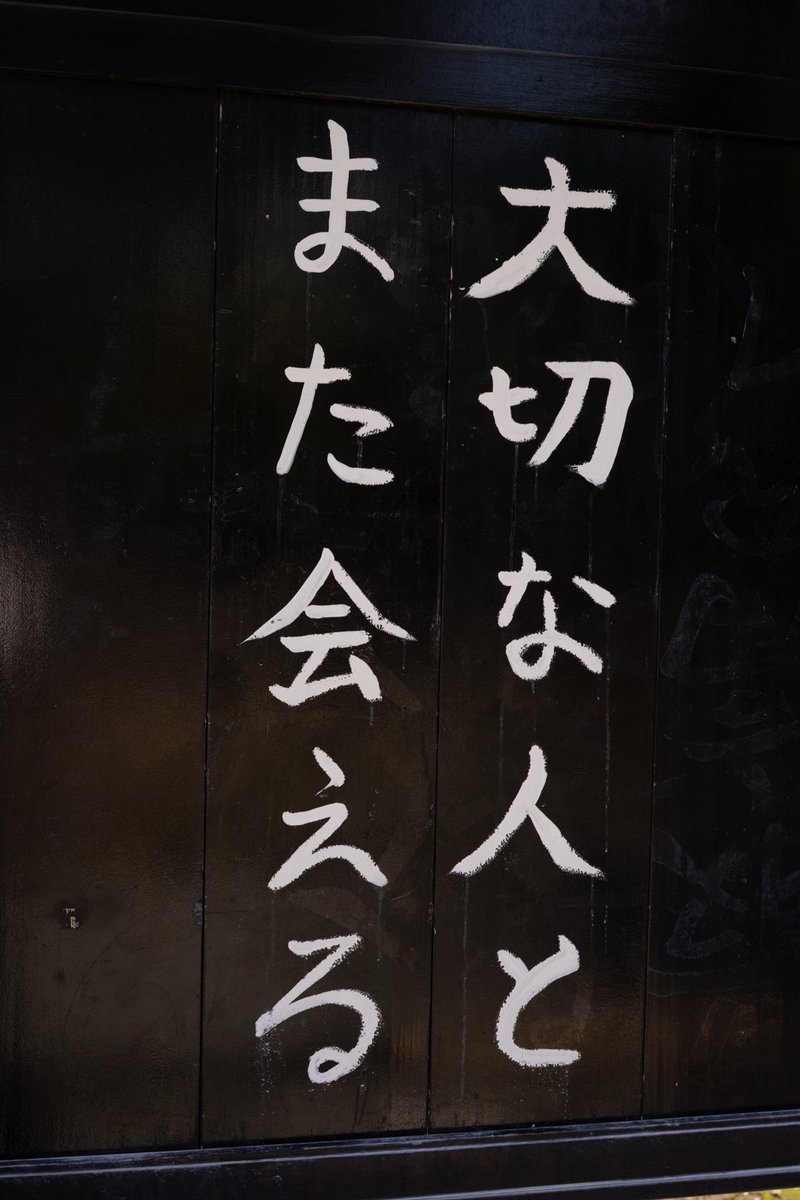 大切な人と
また会える